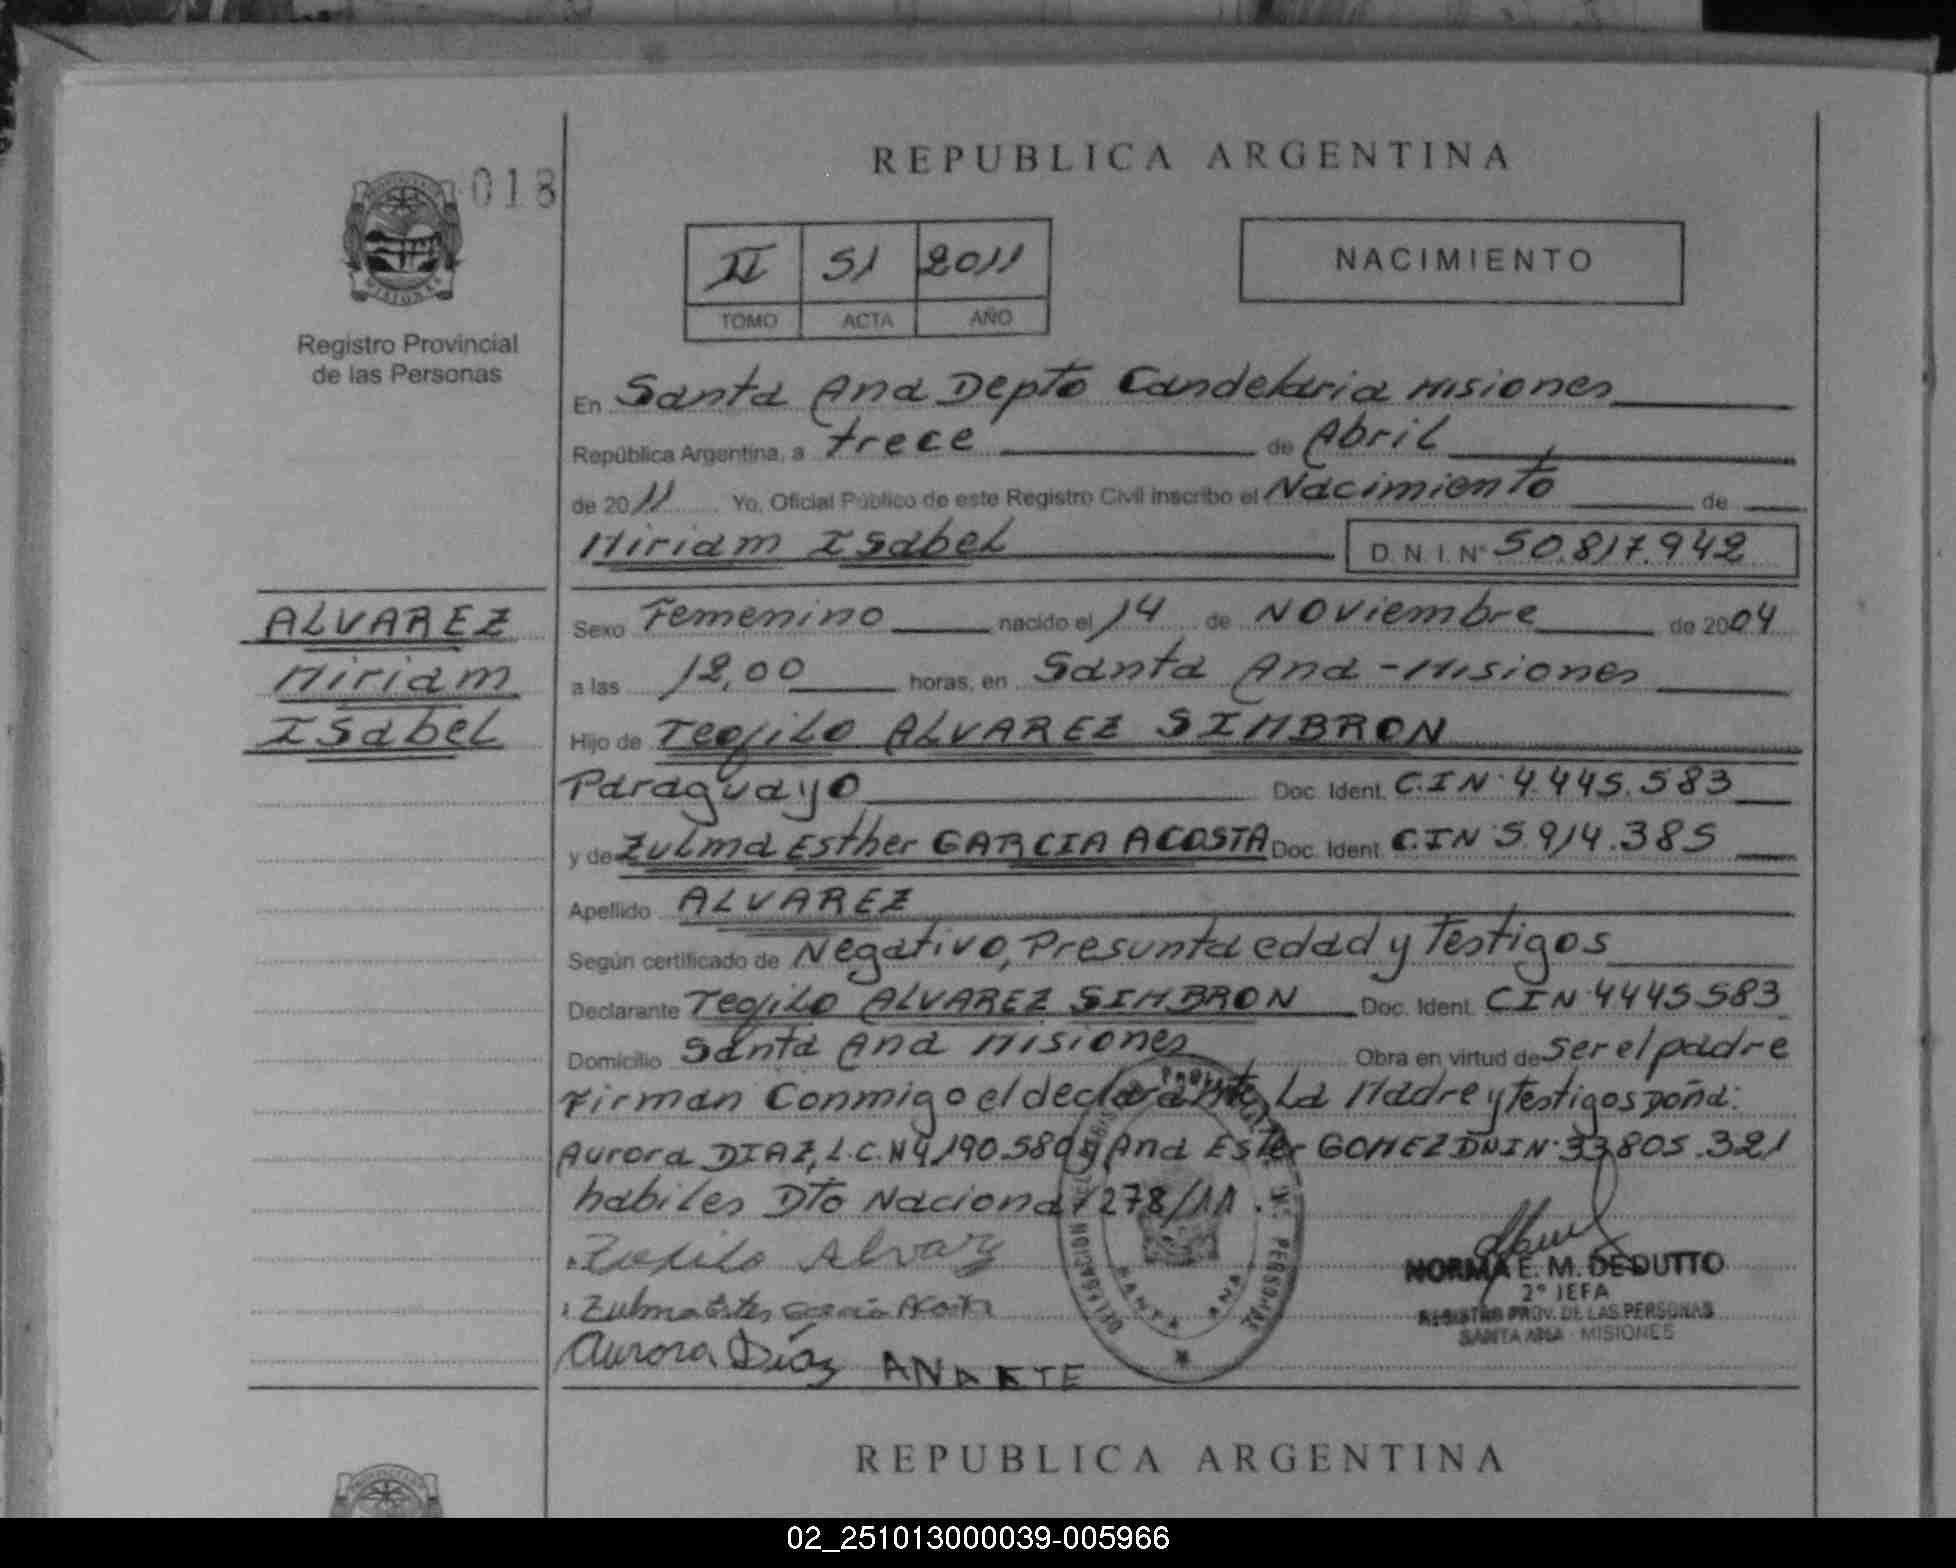 REPUBLICA ARGENTINA
018
MISIONES
Registro Provincial
de las Personas
II 51 2011
TOMO ACTA AÑO
NACIMIENTO
En Santa Ana Depto Candelaria Misiones
República Argentina, a trece de Abril
de 2011 Yo, Oficial Público de este Registro Civil inscribo el Nacimiento de
Miriam Isabel D. N. I. N° 50.817.942
ALVAREZ
Miriam
Isabel
Sexo Femenino nacido el 14 de Noviembre de 2004
a las 12,00 horas, en Santa Ana - Misiones
Hijo de Teofilo ALVAREZ SIMBRON
Paraguayo Doc. Ident. C.I N° 4.445.583
y de Zulma Esther GARCIA ACOSTA Doc. Ident. C.I N° 5.914.385
Apellido ALVAREZ
Según certificado de Negativo, Presunta edad y Testigos
Declarante Teofilo ALVAREZ SIMBRON Doc. Ident. CIN° 4445583
Domicilio Santa Ana Misiones Obra en virtud de Ser el padre
Firman Conmigo el declarante La Madre y Testigos Doña:
Aurora DIAZ, L.C.N 4.190.580 y Ana Ester GOMEZ DNIN° 33.805.321
habiles Dto Nacional 278/11.
Alvarez
Zulma Garcia Acosta
Aurora Díaz ANA ETE
DELEGACION
SANTA ANA
NORMA E. M. DEDUTTO
2° JEFA
REGISTRO PROV. DE LAS PERSONAS
SANTA ANA - MISIONES
REPUBLICA ARGENTINA
02_251013000039-005966